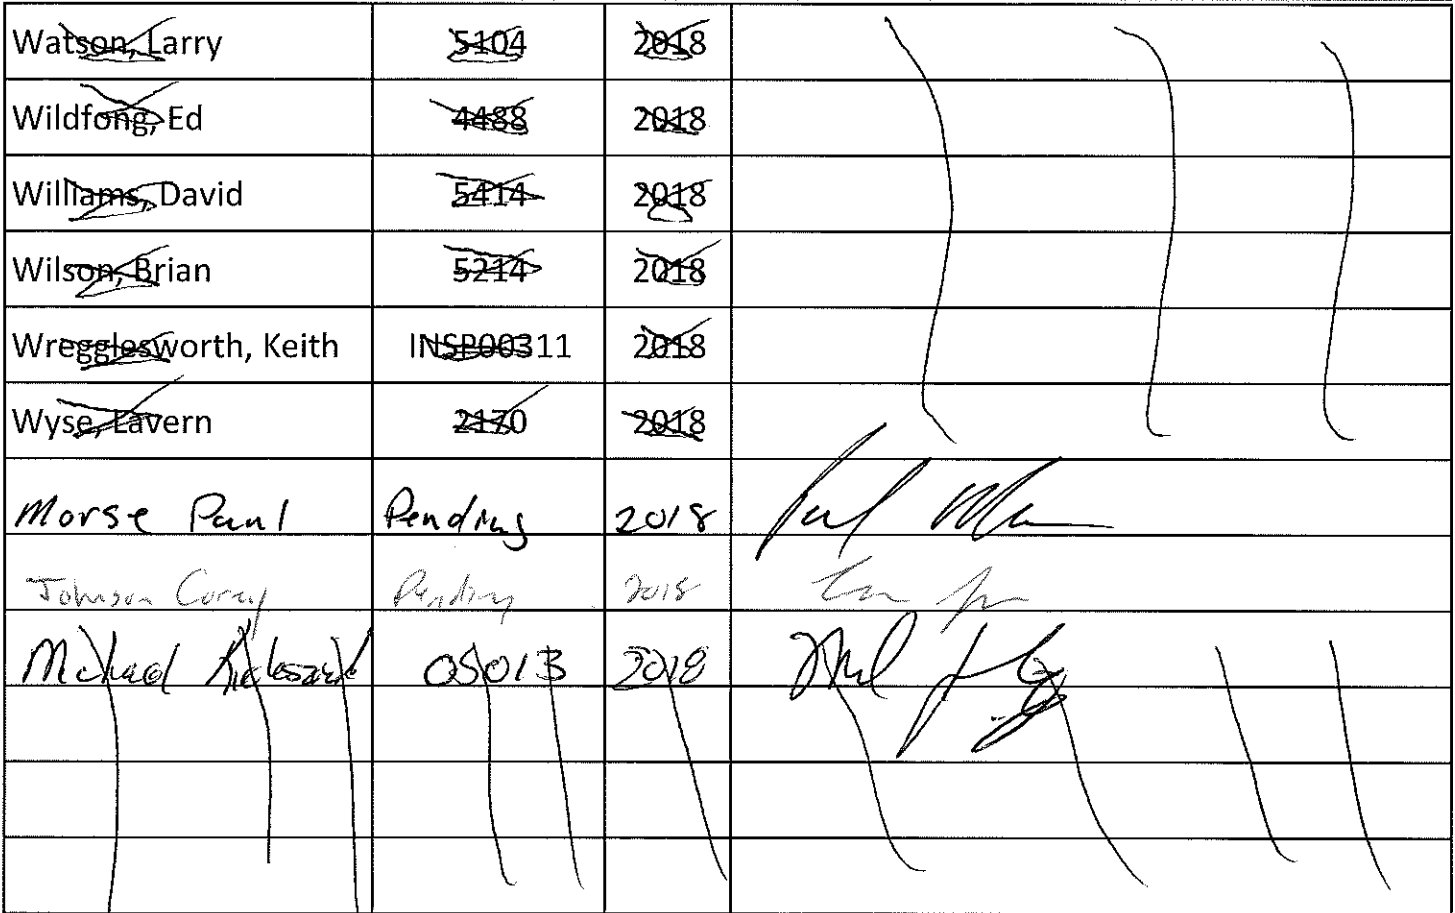 Watson, Larry 5104 2018
Wildfong, Ed 4488 2018
Williams, David 5414 2018
Wilson, Brian 5214 2018
Wregglesworth, Keith INSP00311 2018
Wyse, Lavern 2170 2018
Morse Paul Pending 2018
Johnson Corey Pending 2018
Michael 05013 2018